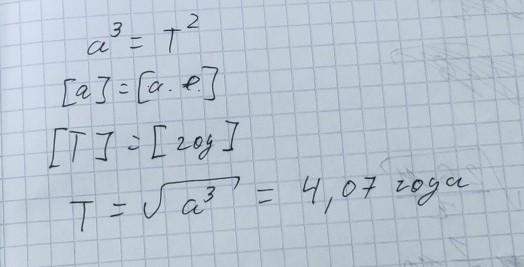 a³ = T²
[a] = [а. е.]
[T] = [год]
T = √a³ = 4,07 года